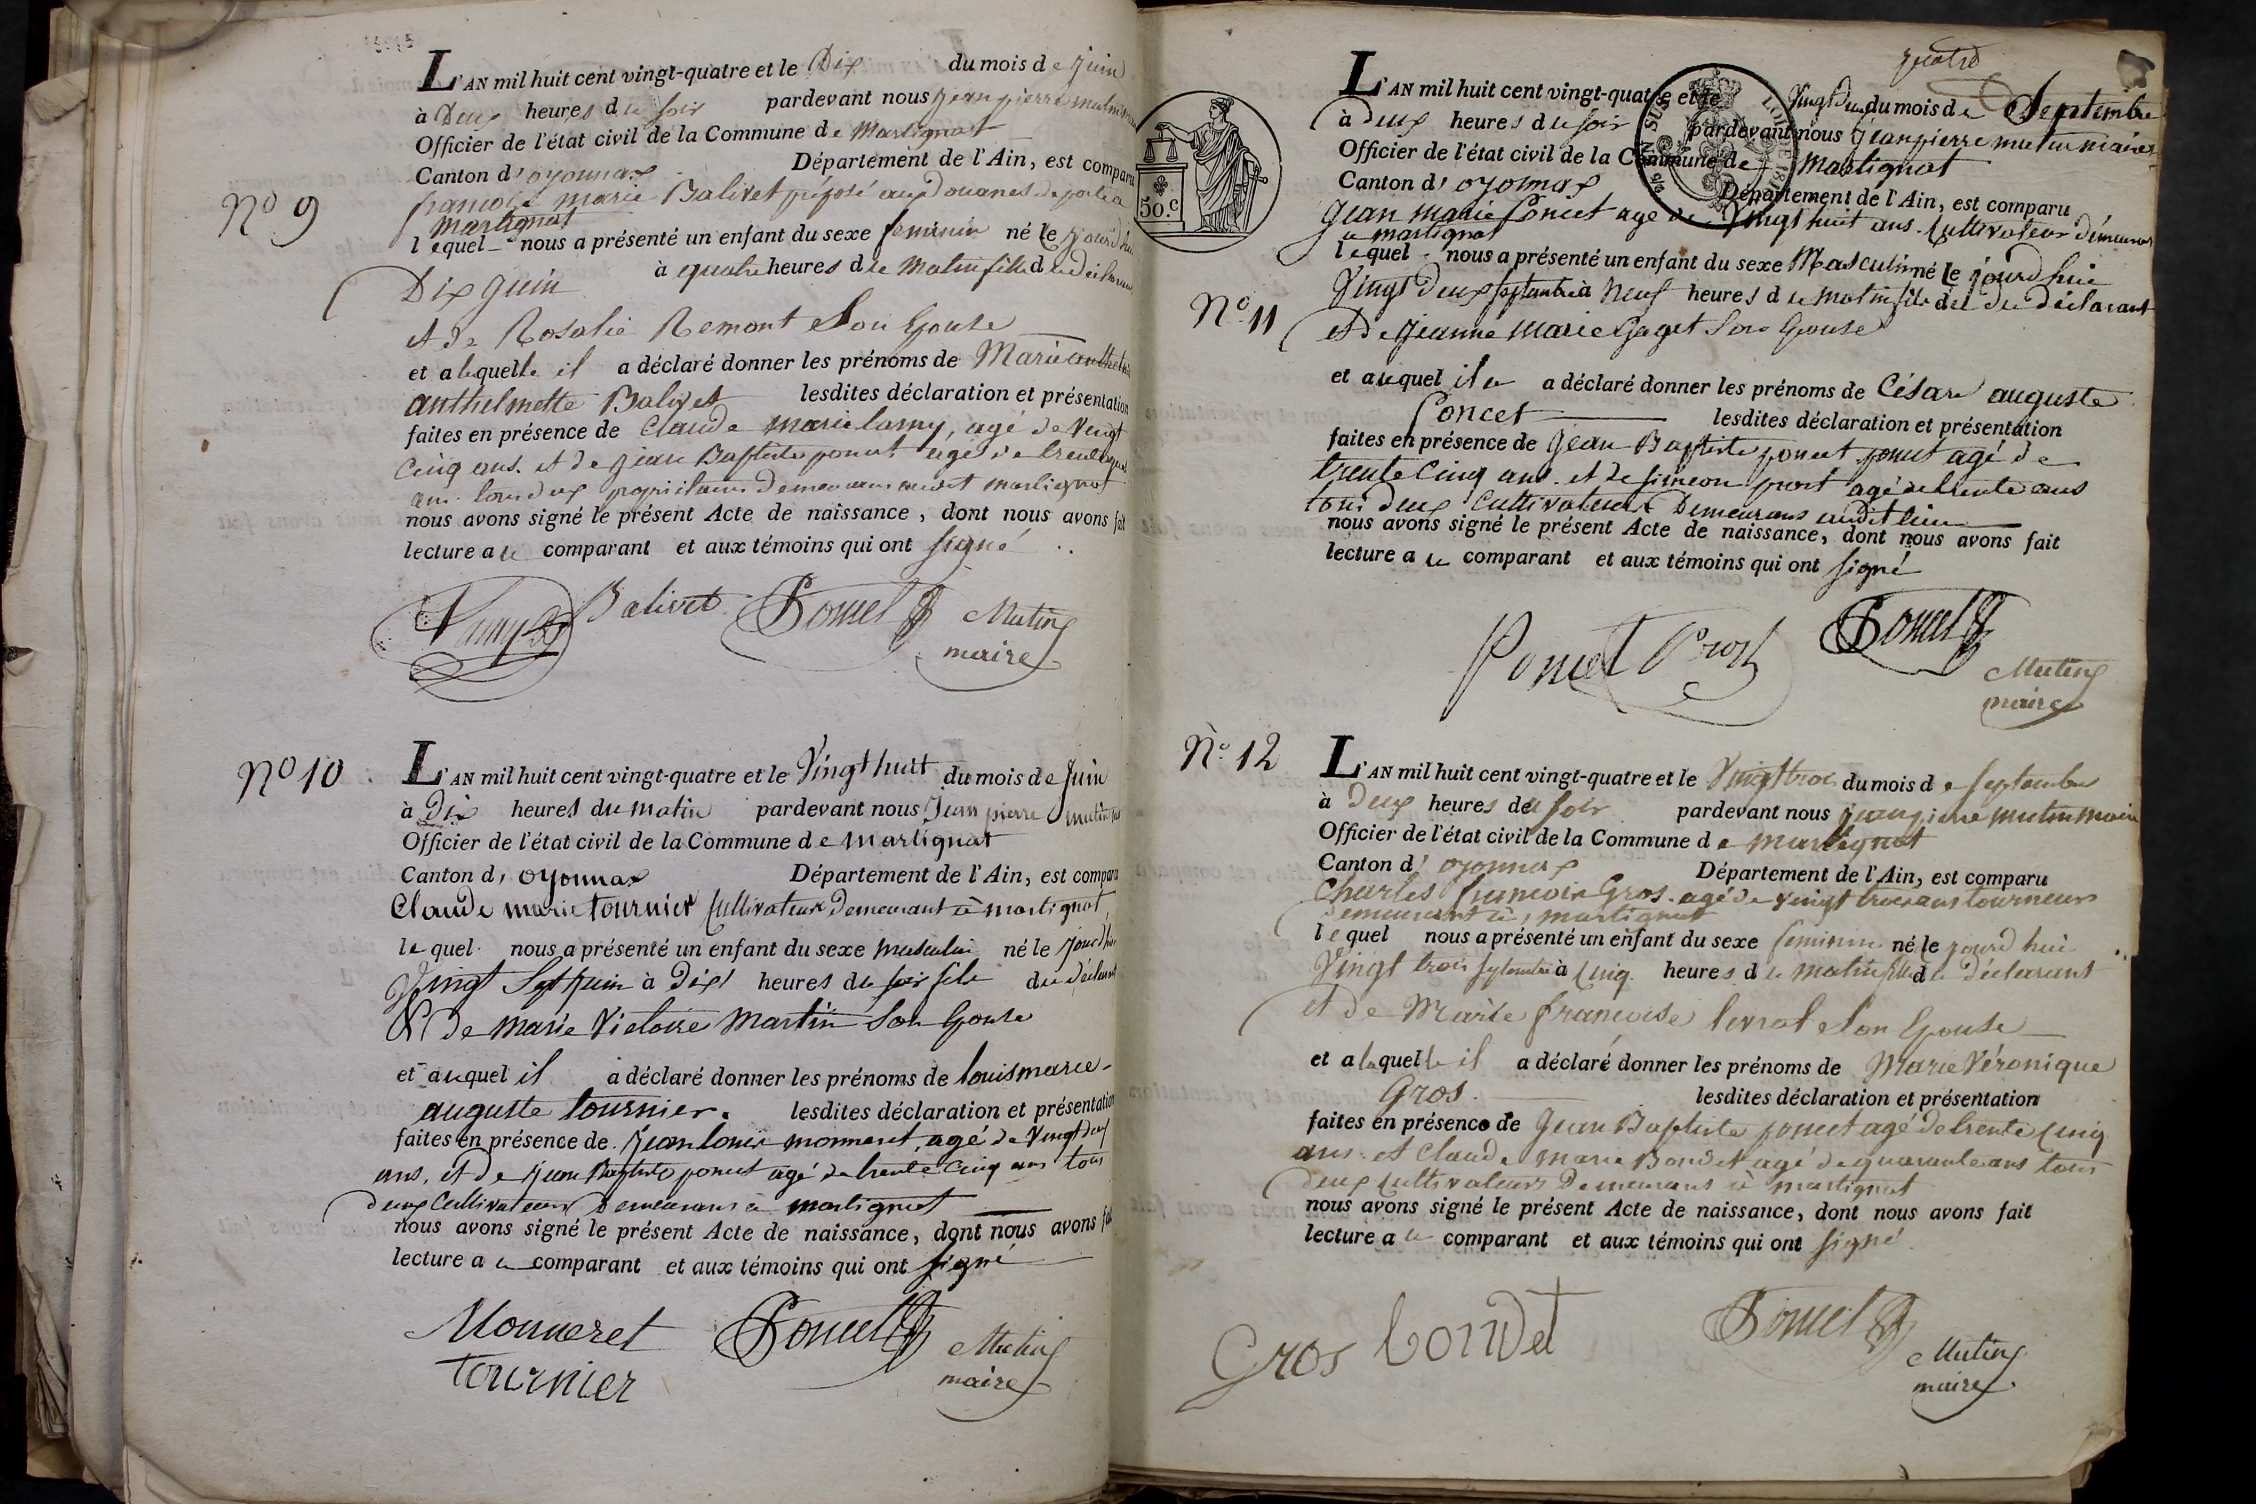 L'AN mil huit cent vingt-quatre et le Dix du mois de juin
à Deux heures du soir pardevant nous jean pierre mutin
Officier de l'état civil de la Commune de Martignat
Canton d'oyonnax Département de l'Ain, est comparu
francois marie Balivet préposé aux douanes de
martignat
lequel nous a présenté un enfant du sexe feminin né le jourd'hui
Dix juin à quatre heures de matin fille du déclarant
et de Rosalie Remont son Epouse
et a laquelle il a déclaré donner les prénoms de Marie
anthelmette Balivet lesdites déclaration et présentation
faites en présence de Claude marie lamy, agé de vingt
cinq ans. et de jean Baptiste poncet agé de trente cinq
ans tous deux propriétaires demeurans audit martignat
nous avons signé le présent Acte de naissance, dont nous avons fait
lecture a ce comparant et aux témoins qui ont signé
Nº 9
Balivet Poncet Mutin
maire
Nº 10
L'AN mil huit cent vingt-quatre et le Vingt huit du mois de Juin
à Dix heures du matin pardevant nous Jean pierre mutin
Officier de l'état civil de la Commune de Martignat
Canton d, oyonnax Département de l'Ain, est comparu
Claude marie tournier Cultivateur demeurant à martignat
lequel nous a présenté un enfant du sexe masculin né le jourd'hui
Vingt Sept juin à Dix heures du soir fils du déclarant
& de marie Victoire Martin son Epouse
et auquel il a déclaré donner les prénoms de louis marie
auguste tournier. lesdites déclaration et présentation
faites en présence de jean louis monneret agé de vingt deux
ans, et de jean Baptiste poncet agé de trente cinq ans tous
deux Cultivateurs Demeurans à martignat
nous avons signé le présent Acte de naissance, dont nous avons fait
lecture a ce comparant et aux témoins qui ont signé
Monneret Poncet Mutin
tournier maire
quatre
50.c
L'AN mil huit cent vingt-quatre et le Vingt Deux du mois de Septembre
à Deux heures du soir pardevant nous jean pierre mutin maire
Officier de l'état civil de la Commune de Martignat
Canton d, oyonnax Département de l'Ain, est comparu
Jean Marie Poncet agé de Vingt huit ans. Cultivateur demeurant
a martignat
lequel nous a présenté un enfant du sexe Masculin né le jourd'hui
Vingt Deux septembre à Neuf heures du matin fils du déclarant
et de jeanne Marie Gaget Son Epouse
Nº 11
et auquel il a déclaré donner les prénoms de César auguste
Poncet lesdites déclaration et présentation
faites en présence de Jean Baptiste poncet agé de
trente Cinq ans. et de simeon prost agé de trente ans
tous deux Cultivateurs Demeurans audit lieu
nous avons signé le présent Acte de naissance, dont nous avons fait
lecture a ce comparant et aux témoins qui ont signé
Poncet Prost Poncet
Mutin
maire
Nº 12
L'AN mil huit cent vingt-quatre et le Vingt trois du mois de Septembre
à Deux heures du soir pardevant nous jean pierre mutin maire
Officier de l'état civil de la Commune de martignat
Canton d' oyonnax Département de l'Ain, est comparu
Charles francois Gros. agé de vingt trois ans tourneur
demeurant à, martignat
lequel nous a présenté un enfant du sexe feminin né le jourd'hui
Vingt trois septembre à Cinq heures du matin fille du déclarant
et de Marie francoise levrat son Epouse
et a laquelle il a déclaré donner les prénoms de Marie Véronique
Gros. lesdites déclaration et présentation
faites en présence de Jean Baptiste poncet agé de trente Cinq
ans. et Claude marie Bondet agé de quarante ans tous
deux Cultivateurs Demeurans à martignat
nous avons signé le présent Acte de naissance, dont nous avons fait
lecture a ce comparant et aux témoins qui ont signé
Gros bondet Poncet
Mutin
maire